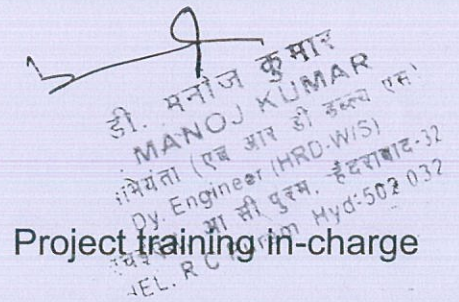 डी. मनोज कुमार
MANOJ KUMAR
(एच आर डी डब्ल्यू एस)
Dy. Engineer (HRD-W/S)
आर सी पुरम, हैदराबाद-32
R C Hyd-502 032
Project training in-charge